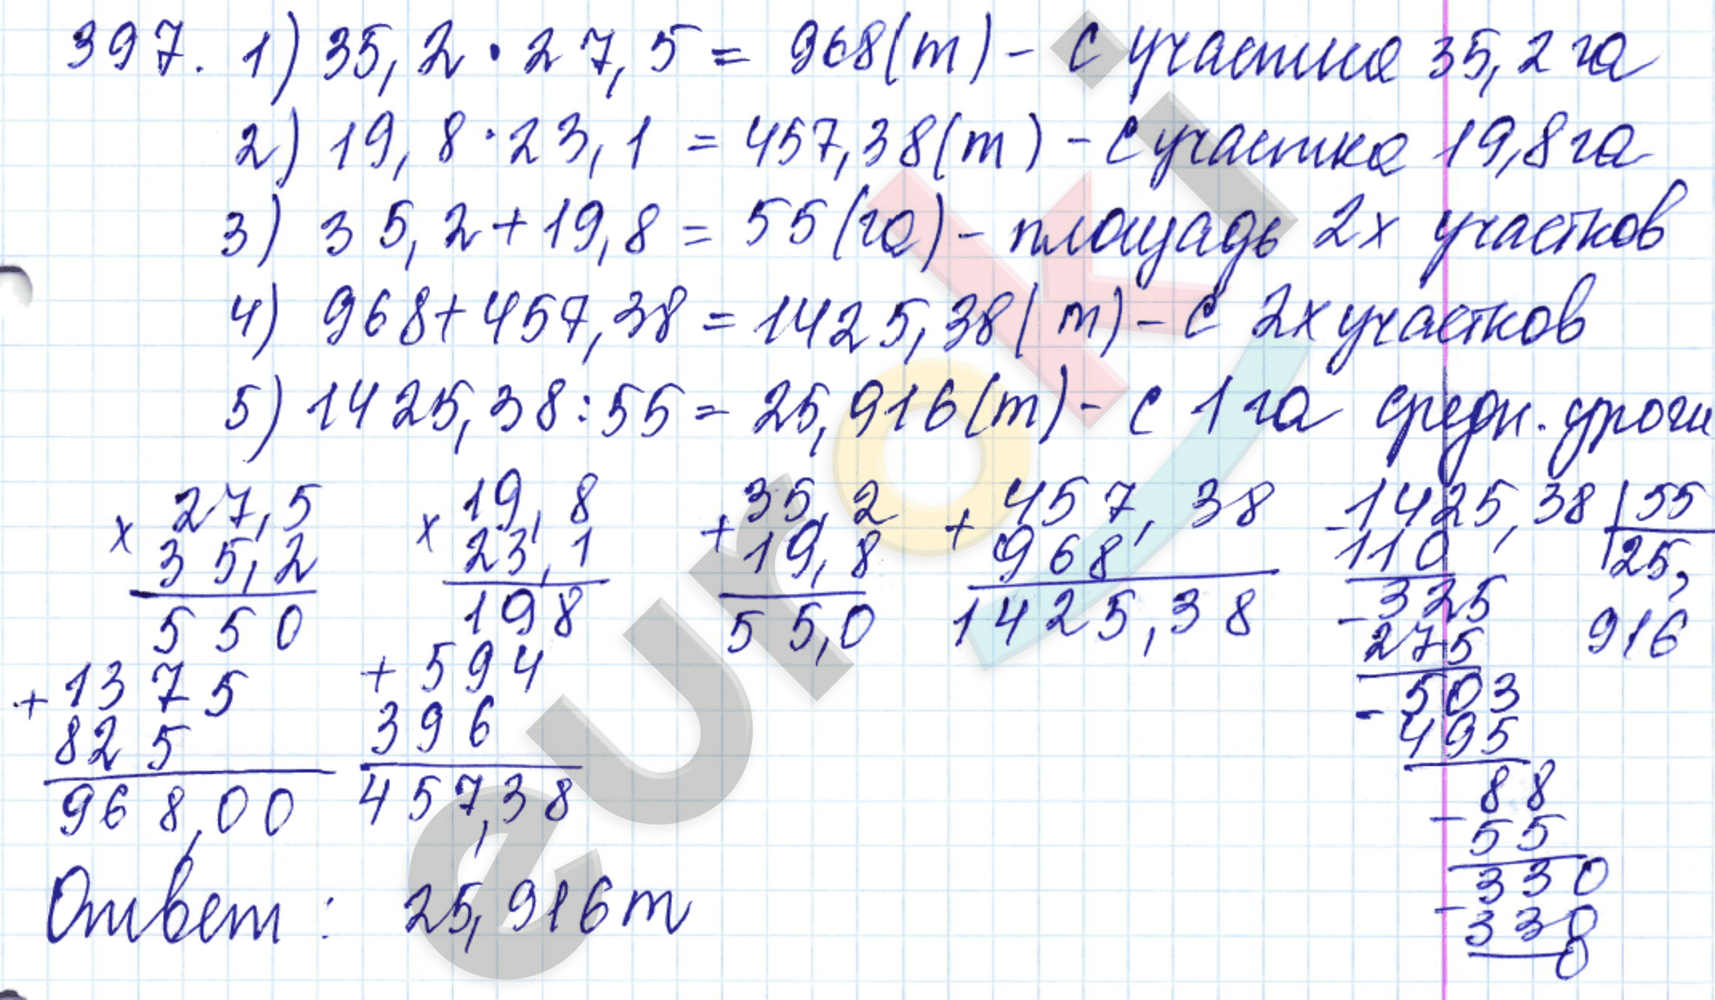 397. 1) 35,2 · 27,5 = 968(т) - с участка 35,2 га
2) 19,8 · 23,1 = 457,38(т) - с участка 19,8 га
3) 35,2 + 19,8 = 55(га) - площадь 2х участков
4) 968 + 457,38 = 1425,38(т) - с 2х участков
5) 1425,38 : 55 = 25,916(т) - с 1 га средн. урожи
× 27,5
35,2
550
+ 1375
825
968,00
× 19,8
23,1
198
+ 594
396
457,38
+ 35,2
19,8
55,0
+ 457,38
968
1425,38
- 1425,38 | 55
110 | 25,
- 325 916
275
- 503
495
- 88
55
- 330
330
0
Ответ: 25,916 т
euroki